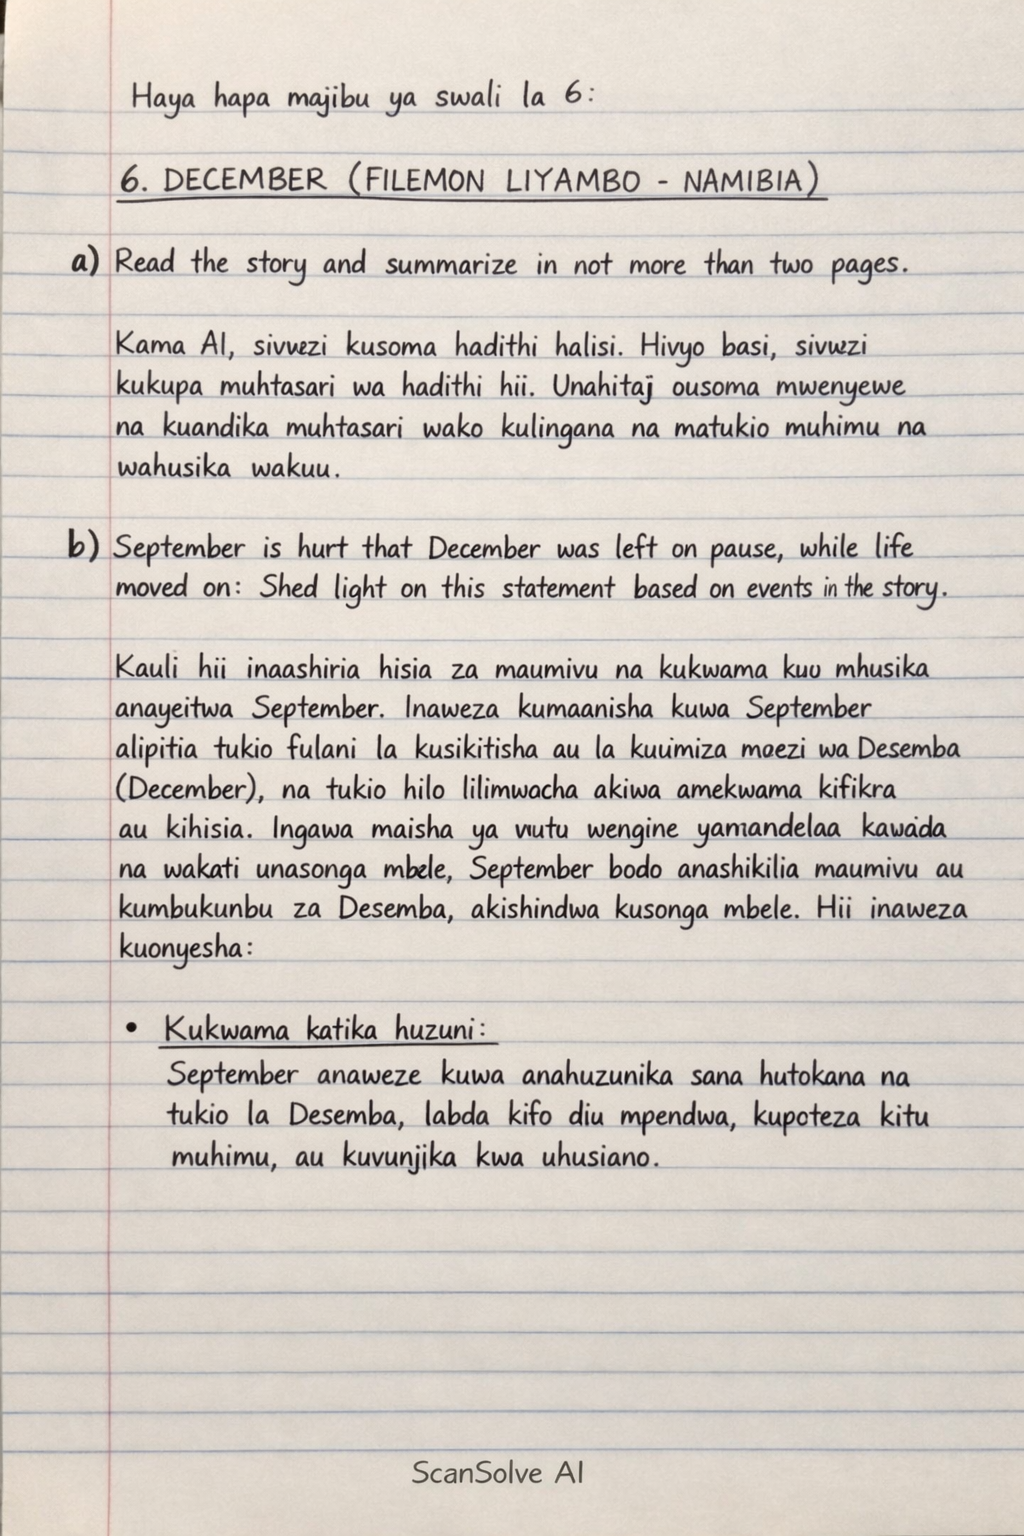 Haya hapa majibu ya swali la 6:
6. DECEMBER (FILEMON LIYAMBO - NAMIBIA)
a) Read the story and summarize in not more than two pages.
Kama AI, sivuezi kusoma hadithi halisi. Hivyo basi, sivuezi
kukupa muhtasari wa hadithi hii. Unahitaj ousoma mwenyewe
na kuandika muhtasari wako kulingana na matukio muhimu na
wahusika wakuu.
b) September is hurt that December was left on pause, while life
moved on: Shed light on this statement based on events in the story.
Kauli hii inaashiria hisia za maumivu na kukwama kuu mhusika
anayeitwa September. Inaweza kumaanisha kuwa September
alipitia tukio fulani la kusikitisha au la kuuimiza moezi wa Desemba
(December), na tukio hilo lilimwacha akiwa amekwama kifikra
au kihisia. Ingawa maisha ya wutu wengine yamandelaa kawada
na wakati unasonga mbele, September bodo anashikilia maumivu au
kumbukunbu za Desemba, akishindwa kusonga mbele. Hii inaweza
kuonyesha:
• Kukwama katika huzuni:
September anaweze kuwa anahuzunika sana hutokana na
tukio la Desemba, labda kifo diu mpendwa, kupoteza kitu
muhimu, au kuvunjika kwa uhusiano.
ScanSolve AI